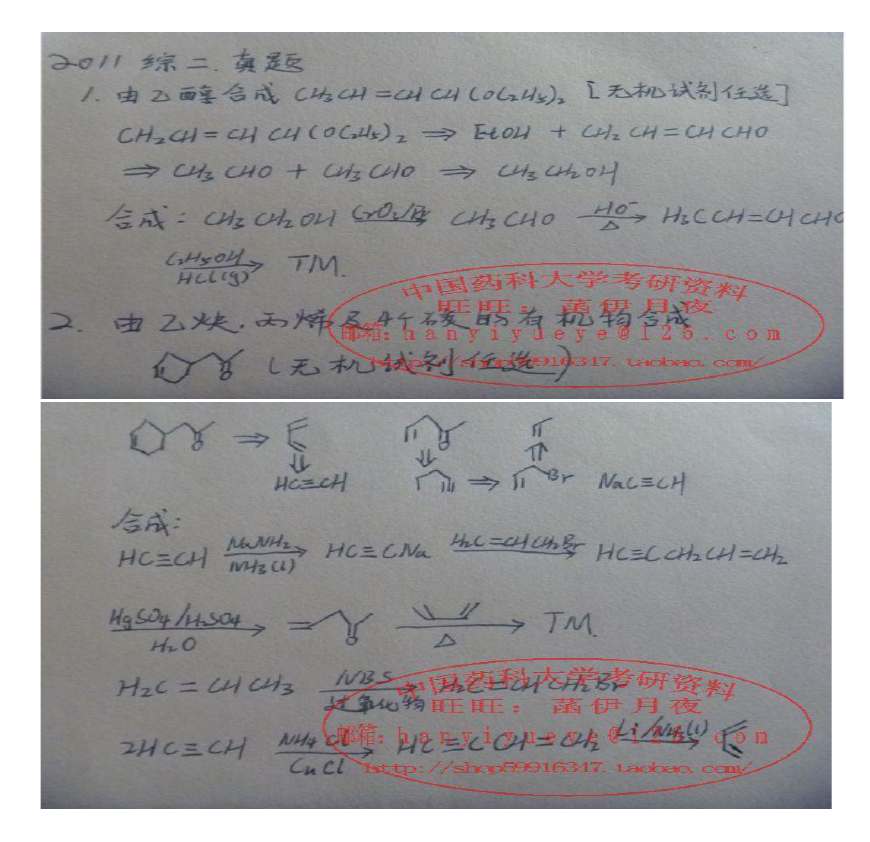 2011 综二. 真题
1. 由乙醇合成 CH₃CH=CHCH(OC₂H₅)₂ [无机试剂任选]
CH₂CH=CHCH(OC₂H₅)₂ ⇒ EtOH + CH₂CH=CHCHO
⇒ CH₃CHO + CH₃CHO ⇒ CH₃CH₂OH
合成: CH₃CH₂OH CrO₃/ CH₃CHO HO⁻ Δ H₃CCH=CHCHO
C₂H₅OH HCl(g) TM.
2. 由乙炔.丙烯及4个碳的有机物合成
(无机试剂任选)
中国药科大学考研资料
旺旺: 菡伊月夜
邮箱:hanyiyueye@126.com
http://shop59916317.taobao.com/
⇒
O
O
HC≡CH ⇒ Br NaC≡CH
合成:
HC≡CH NaNH₂ NH₃(l) HC≡CNa H₂C=CHCH₂Br HC≡CCH₂CH=CH₂
HgSO₄/H₂SO₄ H₂O O Δ TM.
H₂C=CHCH₃ NBS 过氧化物 H₂C=CHCH₂Br
2HC≡CH NH₄Cl CuCl HC≡CCH=CH₂ Li/NH₃(l)
中国药科大学考研资料
旺旺: 菡伊月夜
邮箱:hanyiyueye@126.com
http://shop59916317.taobao.com/